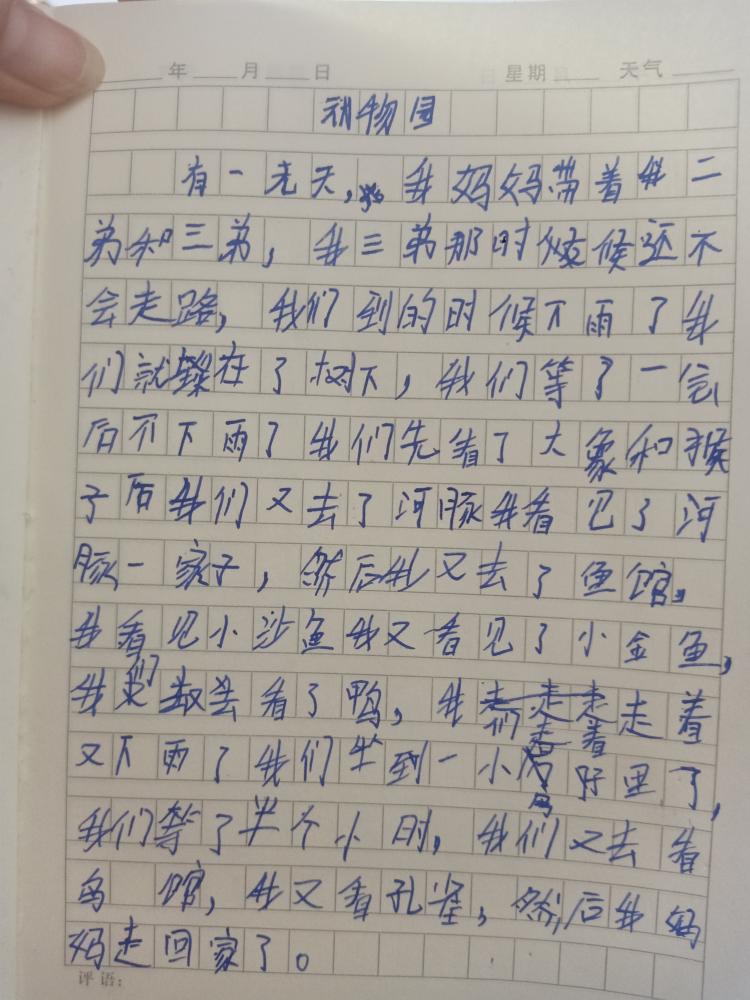 年 月 日 星期 天气
动物园
有一天天，我妈妈带着我二
弟和三弟，我三弟那时候候还不
会走路，我们到的时候下雨了我
们就躲在了树下，我们等了一会
后不下雨了我们先看了大象和猴
子后我们又去了河豚我看见了河
豚一家子，然后我又去了鱼馆。
我看见小沙鱼我又看见了小金鱼，
我们又去看了鸭，我们走着走着
又下雨了我们坐到一小房好里了，
我们等了半个小时，我们又去看
鸟馆，我又看孔雀，然后我妈
妈走回家了。
评语：